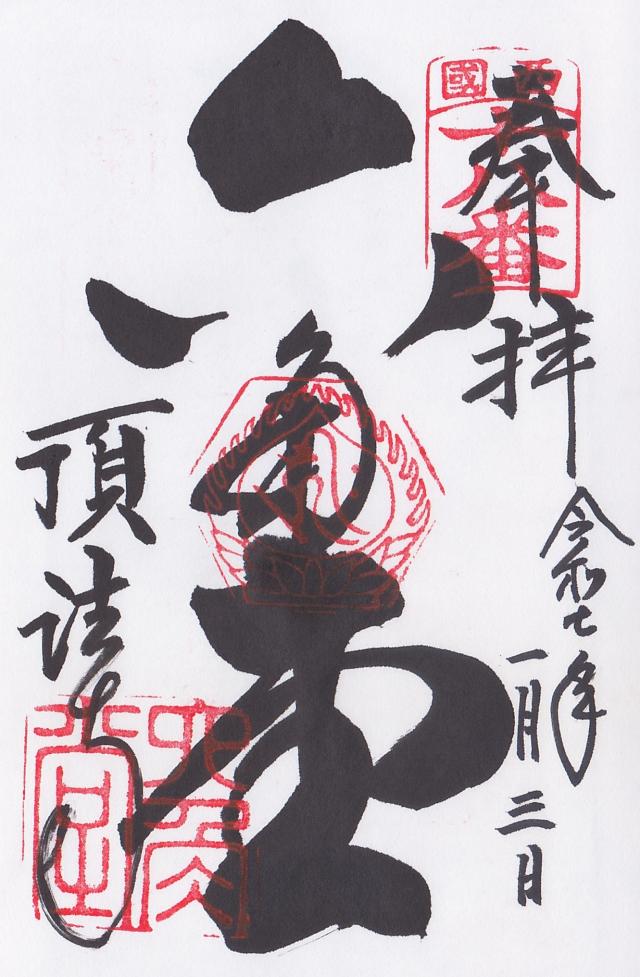 奉拝
西國
十八番
令和七年
一月三日
六角堂
頂法寺
六角堂